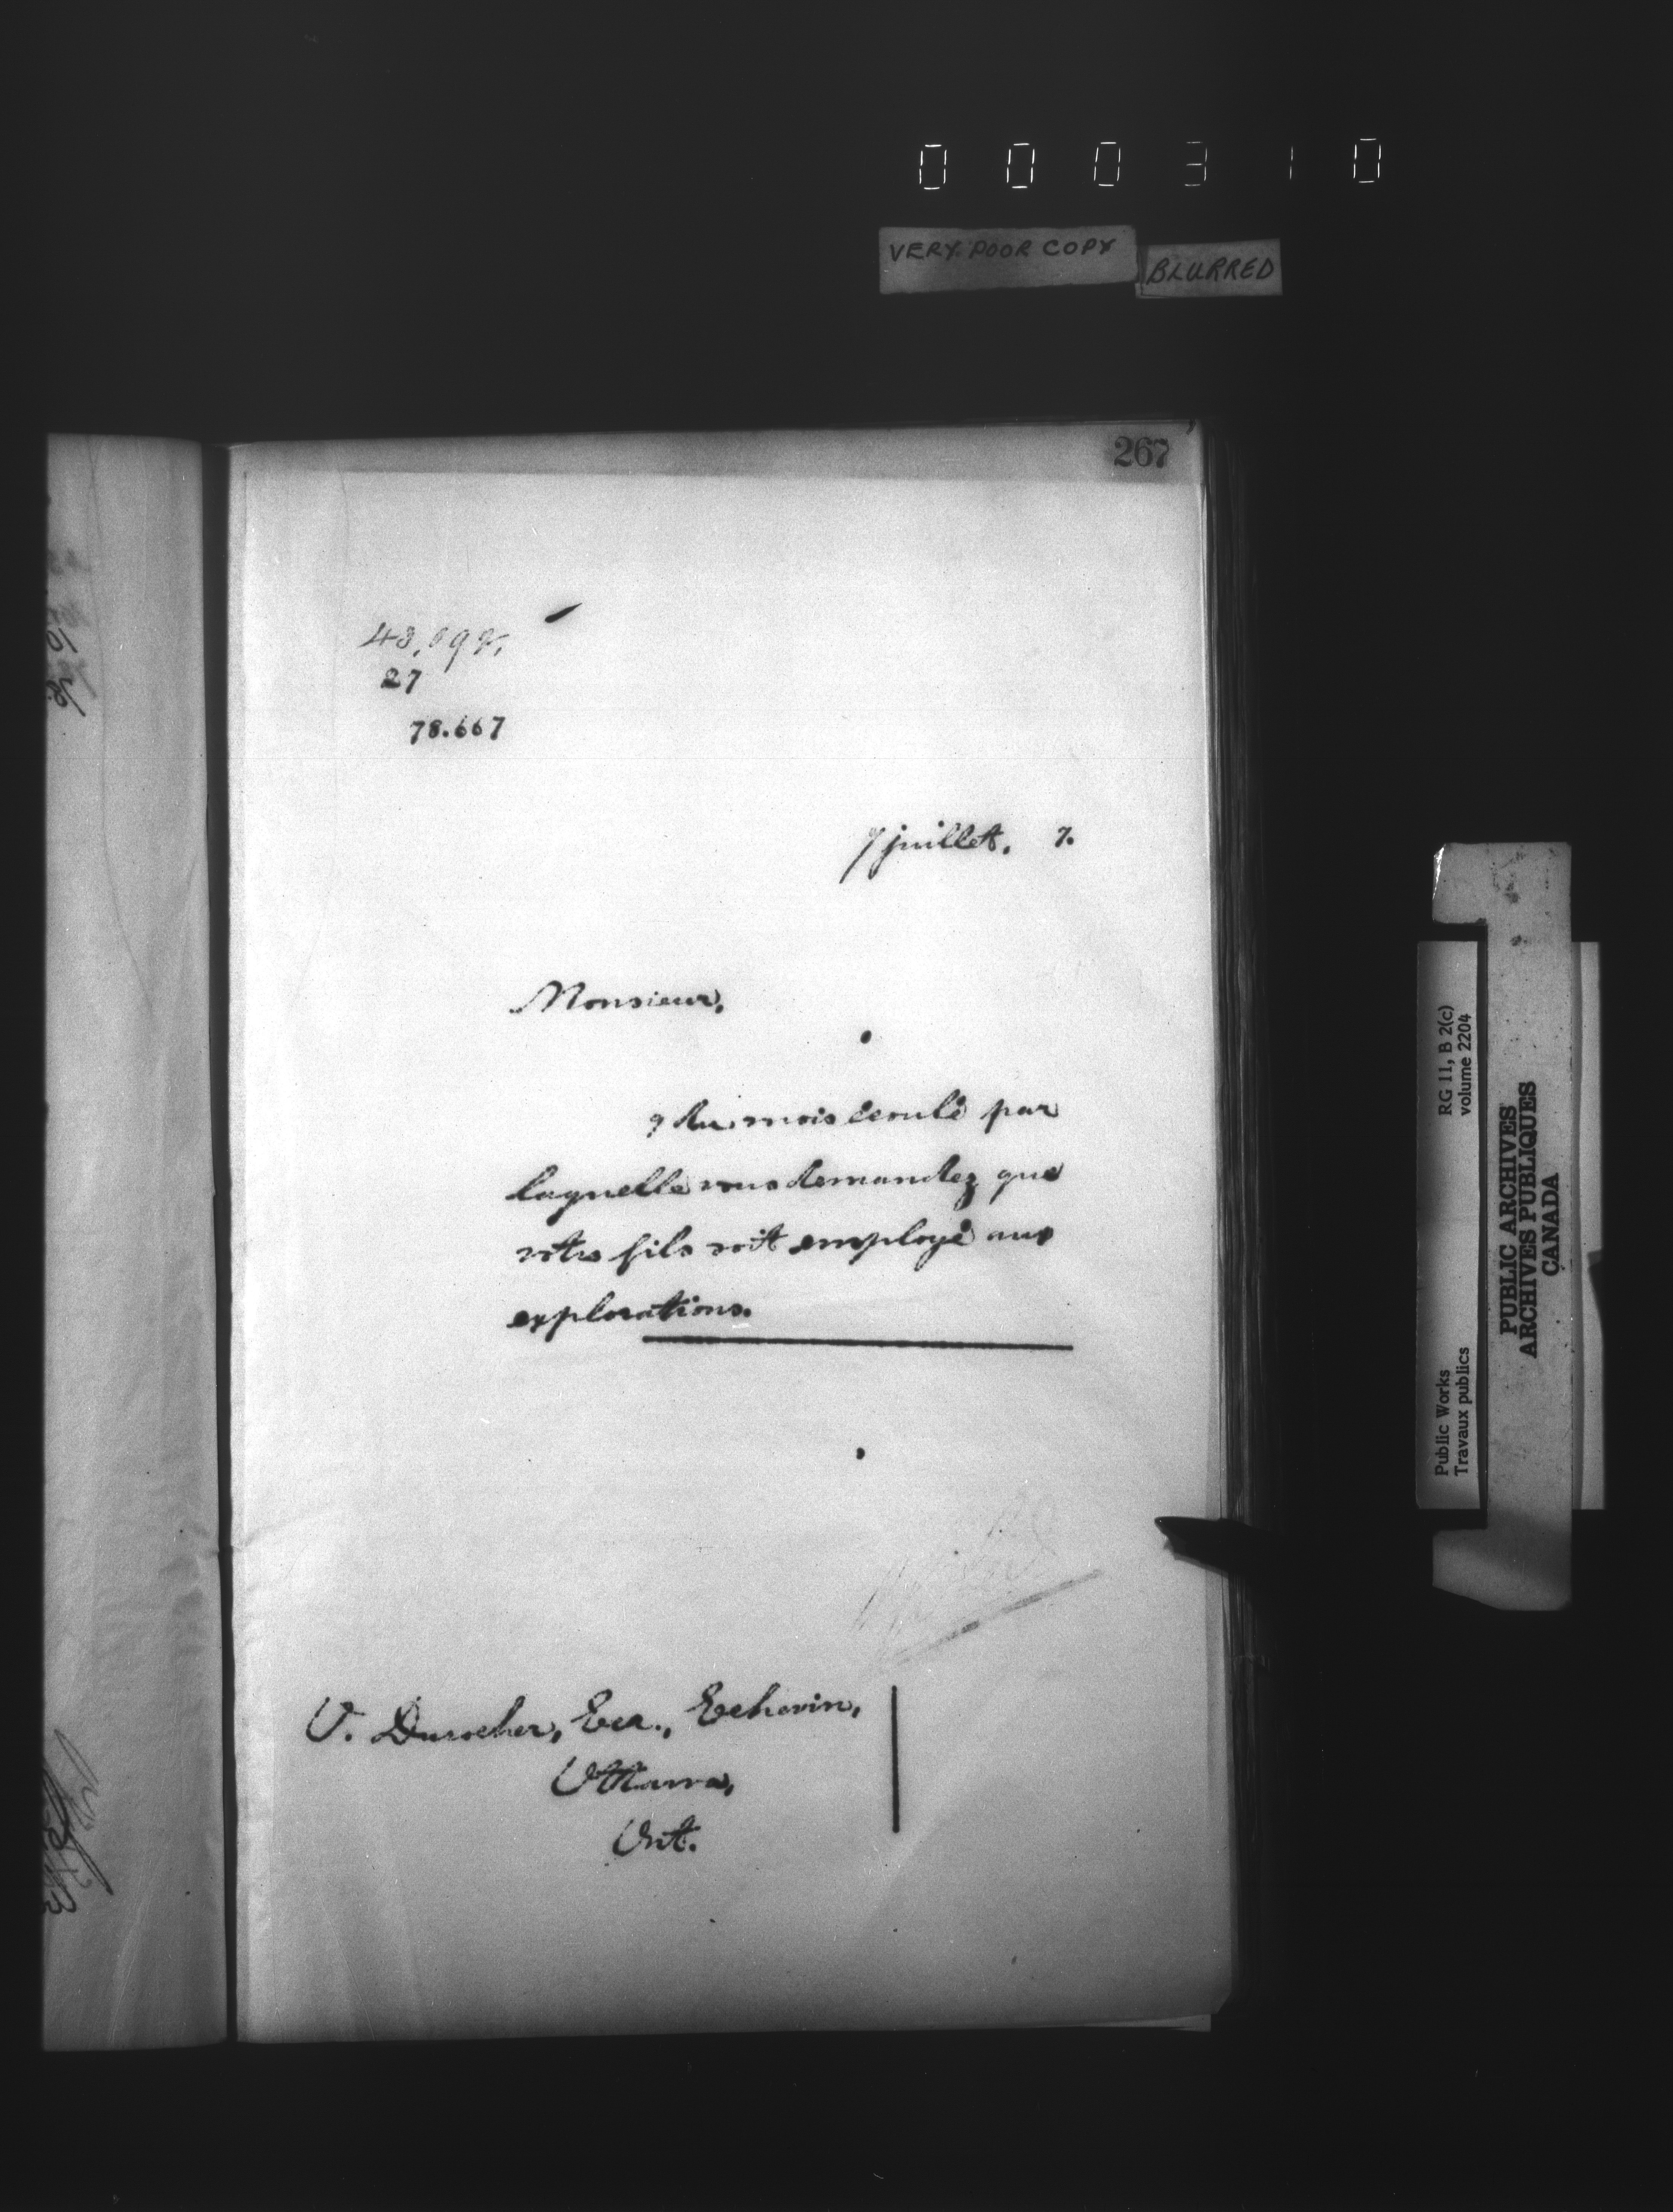 000310
VERY POOR COPY
BLURRED
267
27
78.667
7 juillet. 7.
Monsieur,
9 du mois écoulé par
laquelle vous demandez que
votre fils soit employé aux
explorations.
V. Durocher, Ecr., Echevin,
Ottawa,
Ont.
Public Works
Travaux publics
RG 11, B 2(c)
volume 2204
PUBLIC ARCHIVES
ARCHIVES PUBLIQUES
CANADA